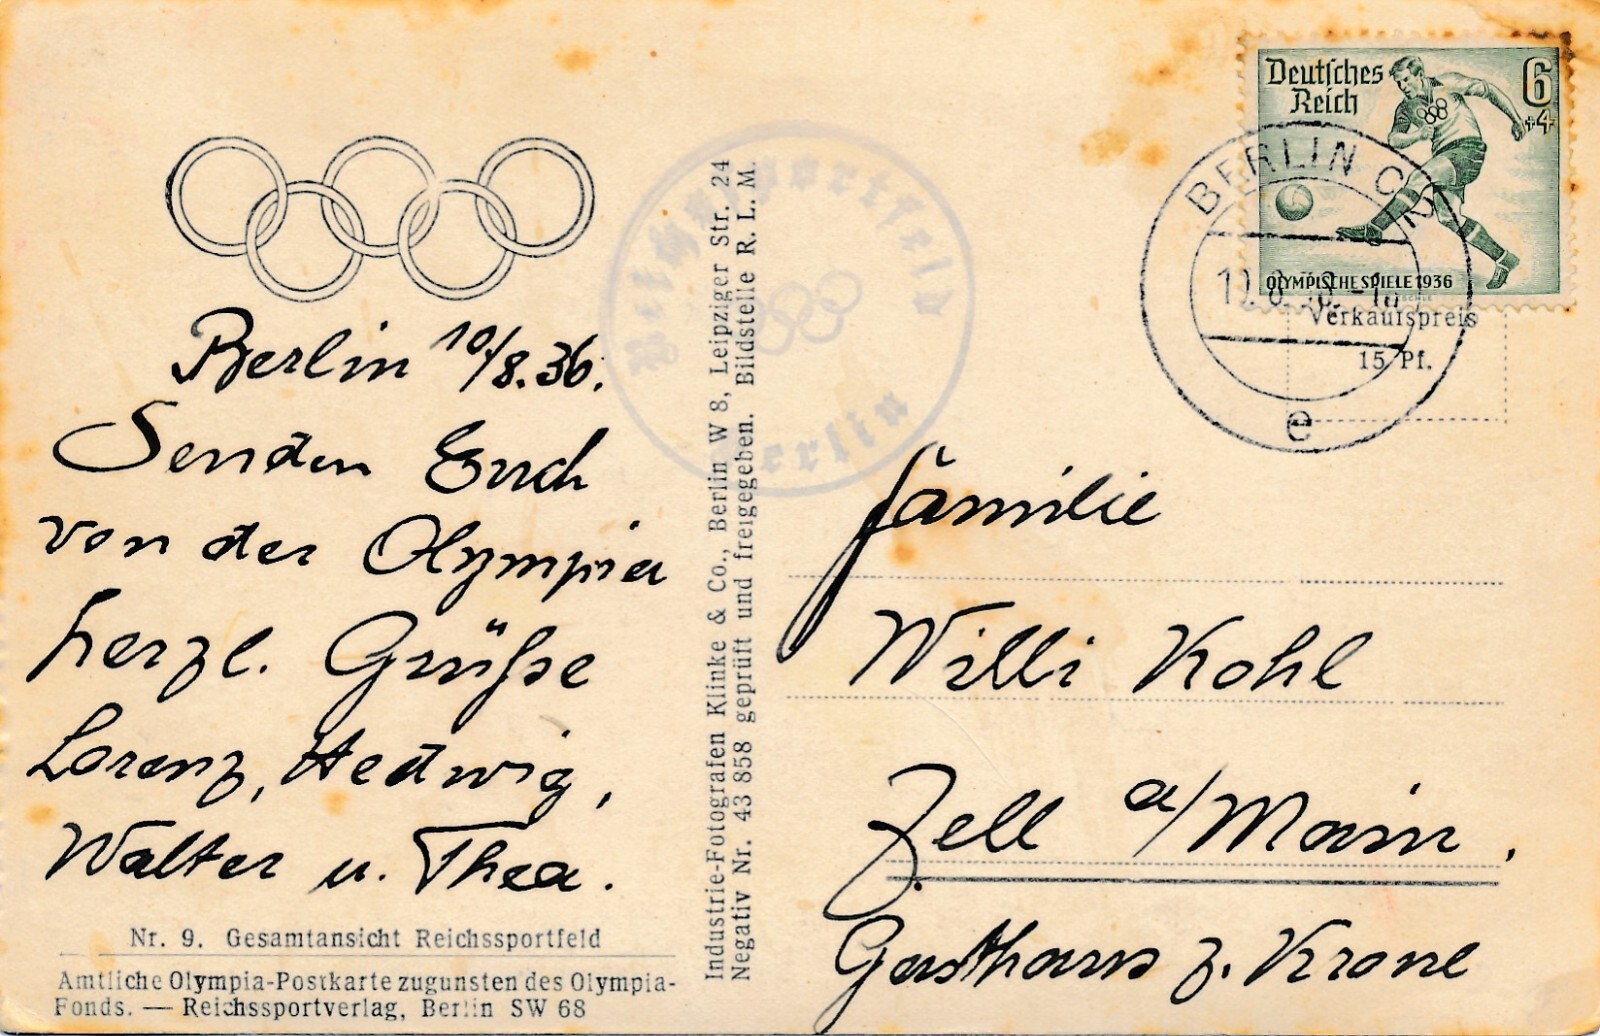 Berlin 10/8.36.
Senden Euch
von der Olympia
herzl. Grüße
Lorenz, Hedwig,
Walter u. Thea.
Nr. 9. Gesamtansicht Reichssportfeld
Amtliche Olympia-Postkarte zugunsten des Olympia-
Fonds. — Reichssportverlag, Berlin SW 68
Industrie-Fotografen Klinke & Co., Berlin W 8, Leipziger Str. 24
Negativ Nr. 43 858 geprüft und freigegeben. Bildstelle R. L. M.
Reichssportfeld
Berlin
Deutsches
Reich
6
+4
OLYMPISCHE SPIELE 1936
BERLIN C 2
e
Verkaufspreis
15 Pf.
Familie
Willi Kohl
Zell a/Main.
Gasthaus z. Krone